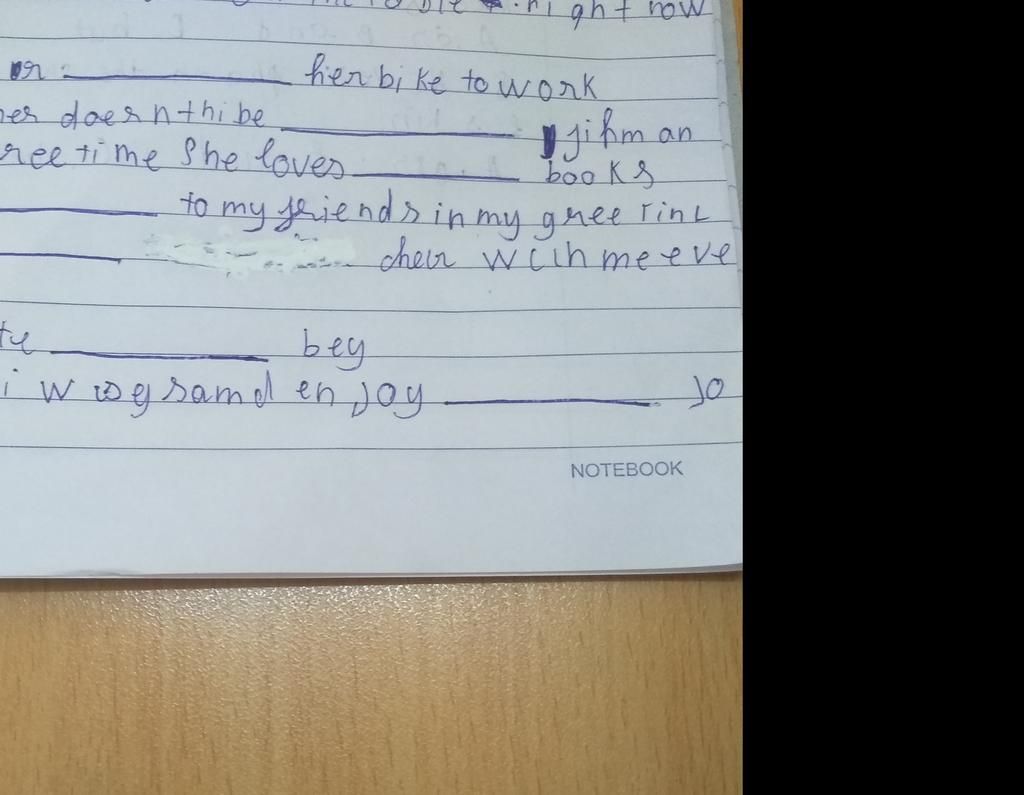 right now
or ____________ her bike to work
her doesn thibe ____________ jihman
ree time She loves ____________ books
____________ to my friends in my gree Tinl
____________ cheir with me eve
te ____________ bey
i w wgsamd enjoy ____________ jo
NOTEBOOK